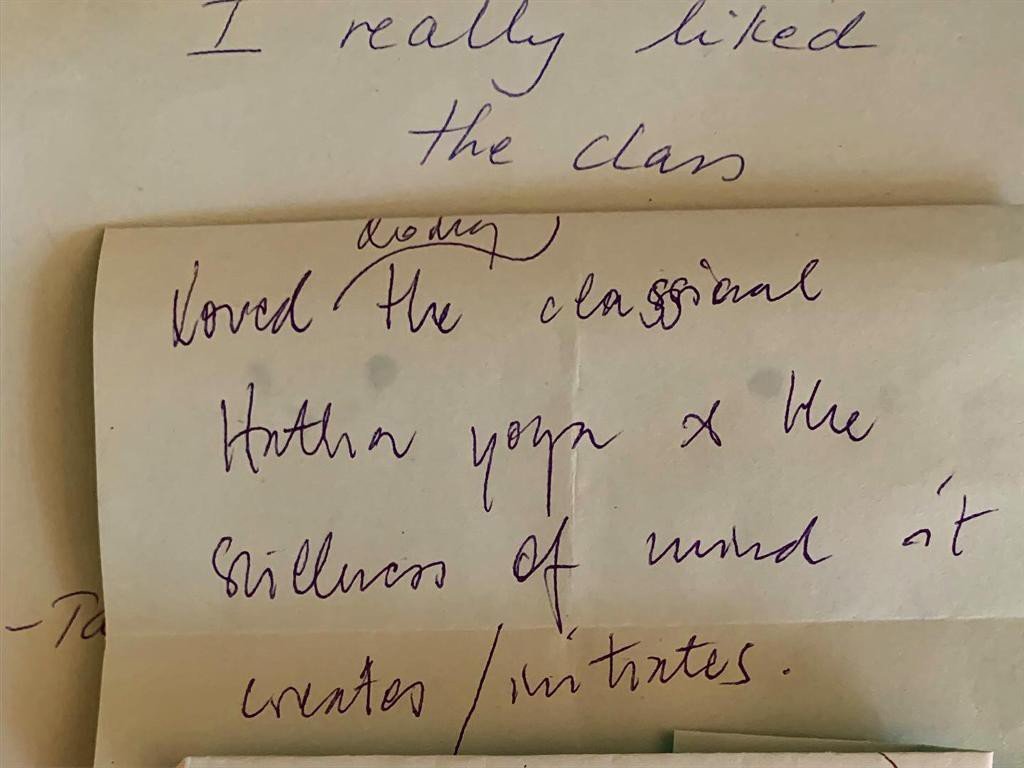 I really liked
the class
doing
Loved the classical
Hatha yoga & the
stillness of mind it
creates / initiates.
- Ta